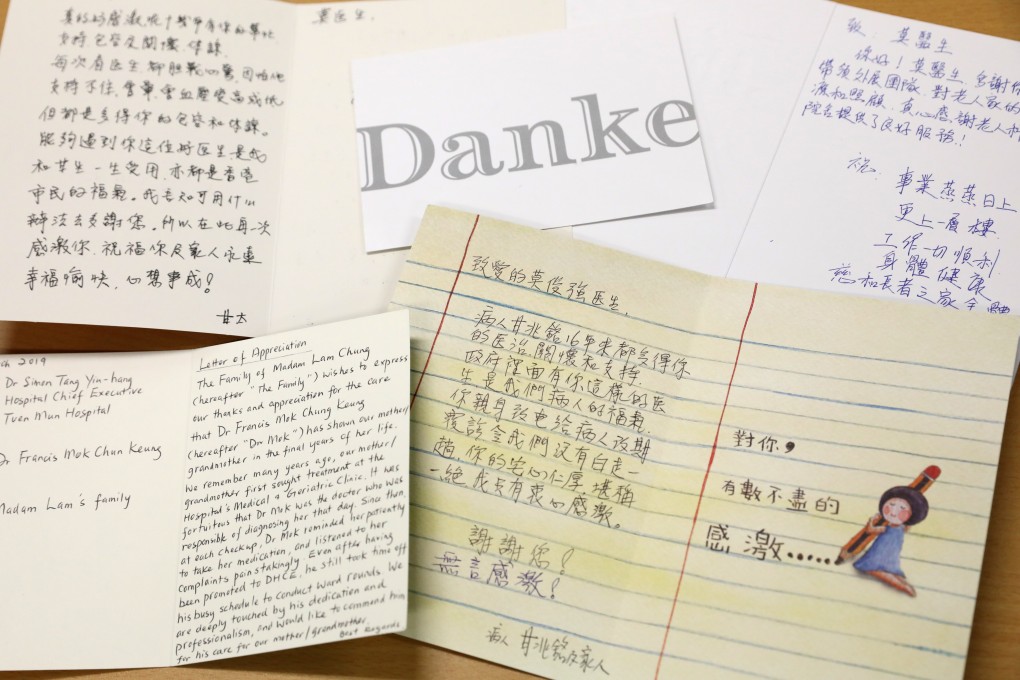 真的好感激
支持包容及關懷、体諒
每次看医生都胆戰心驚,因怕他
支持不住,會暈、會血壓變高或低
但都是多得你的包容和体諒。
能夠遇到你這位好医生是我
和其生一生受用,亦都是香港
市民的福氣。我不知可用什么
辦法去多謝您。所以在此再一次
感激你、祝福你及家人永遠
幸福愉快、心想事成!
甘太
莫医生,
Danke
致:莫醫生
你好!莫醫生,多謝你
帶領外展團隊,對老人家的
和照顧,真心感謝老人
院舍提供了良好服務!
祝:事業蒸蒸日上
更上一層樓
工作一切順利
身體健康
慈和長者之家全體
2019
Dr Simon Tang Yin-hang
Hospital Chief Executive
Tuen Mun Hospital
Dr Francis Mok Chun Keung
Madam Lam's family
Letter of Appreciation
The Family of Madam Lam Chung
(hereafter "The Family") wishes to express
our thanks and appreciation for the care
that Dr Francis Mok Chung Keung
(hereafter "Dr Mok") has shown our mother/
grandmother in the final years of her life.
We remember many years ago, our mother/
grandmother first sought treatment at the
Hospital's Medical & Geriatric Clinic. It was
fortuitous that Dr Mok was the doctor who was
responsible of diagnosing her that day. Since then,
at each checkup, Dr Mok reminded her patiently
to take her medication, and listened to her
complaints painstakingly. Even after having
been promoted to DHCE, he still took time off
his busy schedule to conduct ward rounds. We
are deeply touched by his dedication and
professionalism, and would like to commend him
for his care for our mother/grandmother.
Best Regards
致愛的莫俊強医生,
病人甘兆銘16年來都多得你
的医治、關懷和支持.
政府裡面有你這樣的医
生是我們病人的福氣.
你親身致电給病人改期
覆診令我們沒有白走一
趟,你的安心仁厚堪稱
一絕,我只有衷心感激。
謝謝您!
無言感激!
病人 甘兆銘及家人
對你,
有數不盡的
感激......